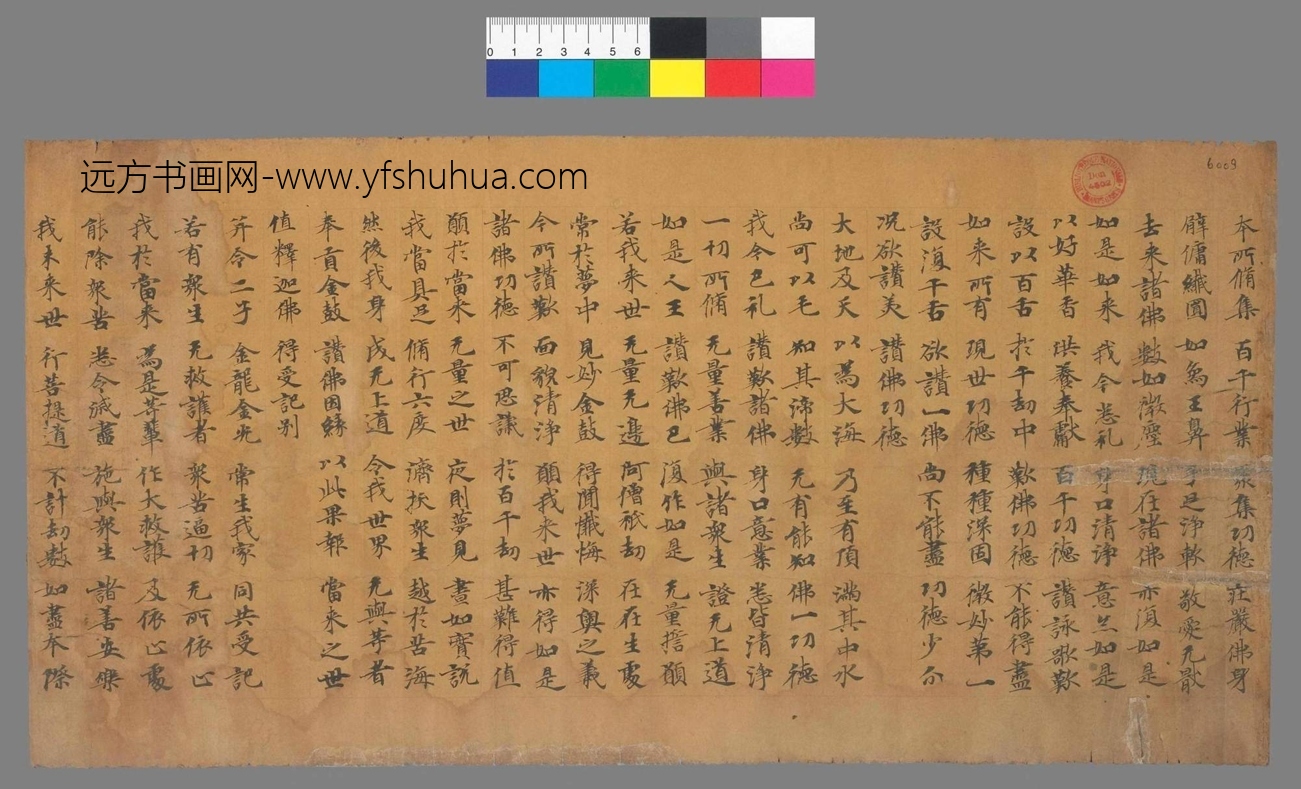 远方书画网-www.yfshuhua.com
6009
0 1 2 3 4 5 6
本所脩集 百千行業 聚集功德 莊嚴佛身
臂傭纖圓 如象王鼻 手足淨軟 敬愛无猒
去來諸佛 數如微塵 現在諸佛 亦復如是
如是如來 我今悉礼 身口清淨 意亦如是
以好華香 供養奉獻 百千功德 讚詠歌歎
設以百舌 於千劫中 歎佛功德 不能得盡
如來所有 現世功德 種種深固 微妙第一
設復千舌 欲讚一佛 尚不能盡 功德少分
况欲讚美 讚佛功德
大地及天 以為大海 乃至有頂 滿其中水
尚可以毛 知其渧數 无有能知 佛一功德
我今已礼 讚歎諸佛 身口意業 悉皆清淨
一切所脩 无量善業 與諸眾生 證无上道
如是人王 讚歎佛已 復作如是 无量誓願
若我來世 无量无邊 阿僧祇劫 在在生處
常於夢中 見妙金鼓 得聞懺悔 深奧之義
今所讚歎 面貌清淨 願我來世 亦得如是
諸佛功德 不可思議 於百千劫 甚難得值
願於當來 无量之世 夜則夢見 晝如實說
我當具足 脩行六度 濟拔眾生 越於苦海
然後我身 成无上道 令我世界 无與等者
奉貢金鼓 讚佛因緣 以此果報 當來之世
值釋迦佛 得受記別
并令二子 金龍金光 常生我家 同共受記
若有眾生 无救護者 眾苦逼切 无所依止
我於當來 為是等輩 作大救護 及依止處
能除眾苦 悉令滅盡 施與眾生 諸善安樂
我未來世 行菩提道 不計劫數 如盡本際